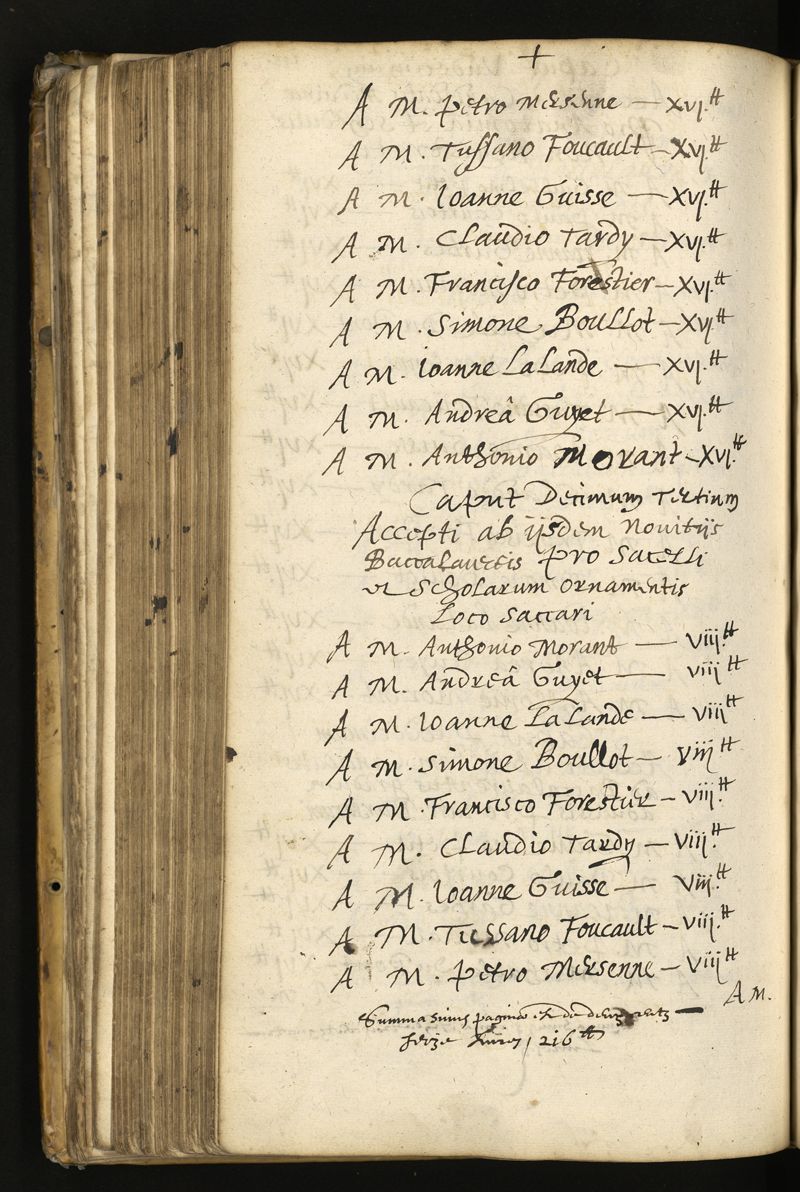 +
A M. Petro Mersenne — xvj.tt
A M. Tussano Foucault — xvj.tt
A M. Ioanne Guisse — xvj.tt
A M. Claudio Tardy — xvj.tt
A M. Francisco Forestier — xvj.tt
A M. Simone Boullot — xvj.tt
A M. Ioanne LaLande — xvj.tt
A M. Andreâ Guyet — xvj.tt
A M. Anthonio Morant — xvj.tt
Caput Decimum Tertium
Accepti ab ijsdem Novitijs
Baccalaureis pro Sacelli
et Scholarum ornamentis
Loco Saccari
A M. Anthonio Morant — viij.tt
A M. Andreâ Guyet — viij tt
A M. Ioanne LaLande — viij tt
A M. Simone Boullot — viij tt
A M. Francisco Forestier — viij.tt
A M. Claudio Tardy — viij.tt
A M. Ioanne Guisse — viij.tt
A M. Tussano Foucault — viij.tt
A M. Petro Mersenne — viij tt
A M.
Summa paginæ de deux centz —
seize 216 tt